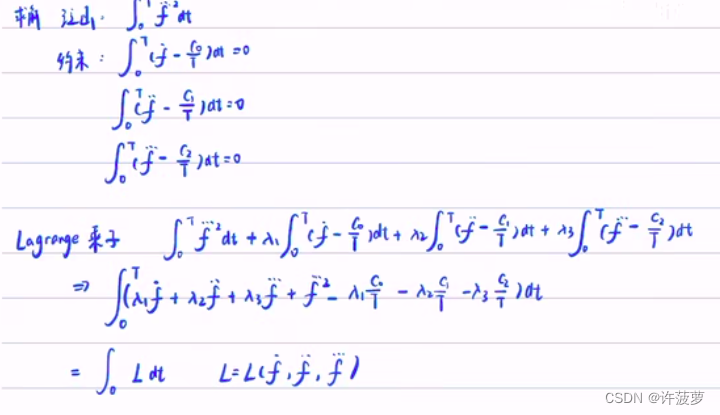 求解 泛函: ∫₀ᵀ f⃛² dt
约束: ∫₀ᵀ (ḟ - C₀/T) dt = 0
∫₀ᵀ (f̈ - C₁/T) dt = 0
∫₀ᵀ (f⃛ - C₂/T) dt = 0
Lagrange 乘子 ∫₀ᵀ f⃛² dt + λ₁ ∫₀ᵀ (ḟ - C₀/T) dt + λ₂ ∫₀ᵀ (f̈ - C₁/T) dt + λ₃ ∫₀ᵀ (f⃛ - C₂/T) dt
⇒ ∫₀ᵀ (λ₁ḟ + λ₂f̈ + λ₃f⃛ + f⃛² - λ₁ C₀/T - λ₂ C₁/T - λ₃ C₂/T) dt
= ∫₀ L dt L = L(ḟ, f̈, f⃛)
CSDN @许菠萝